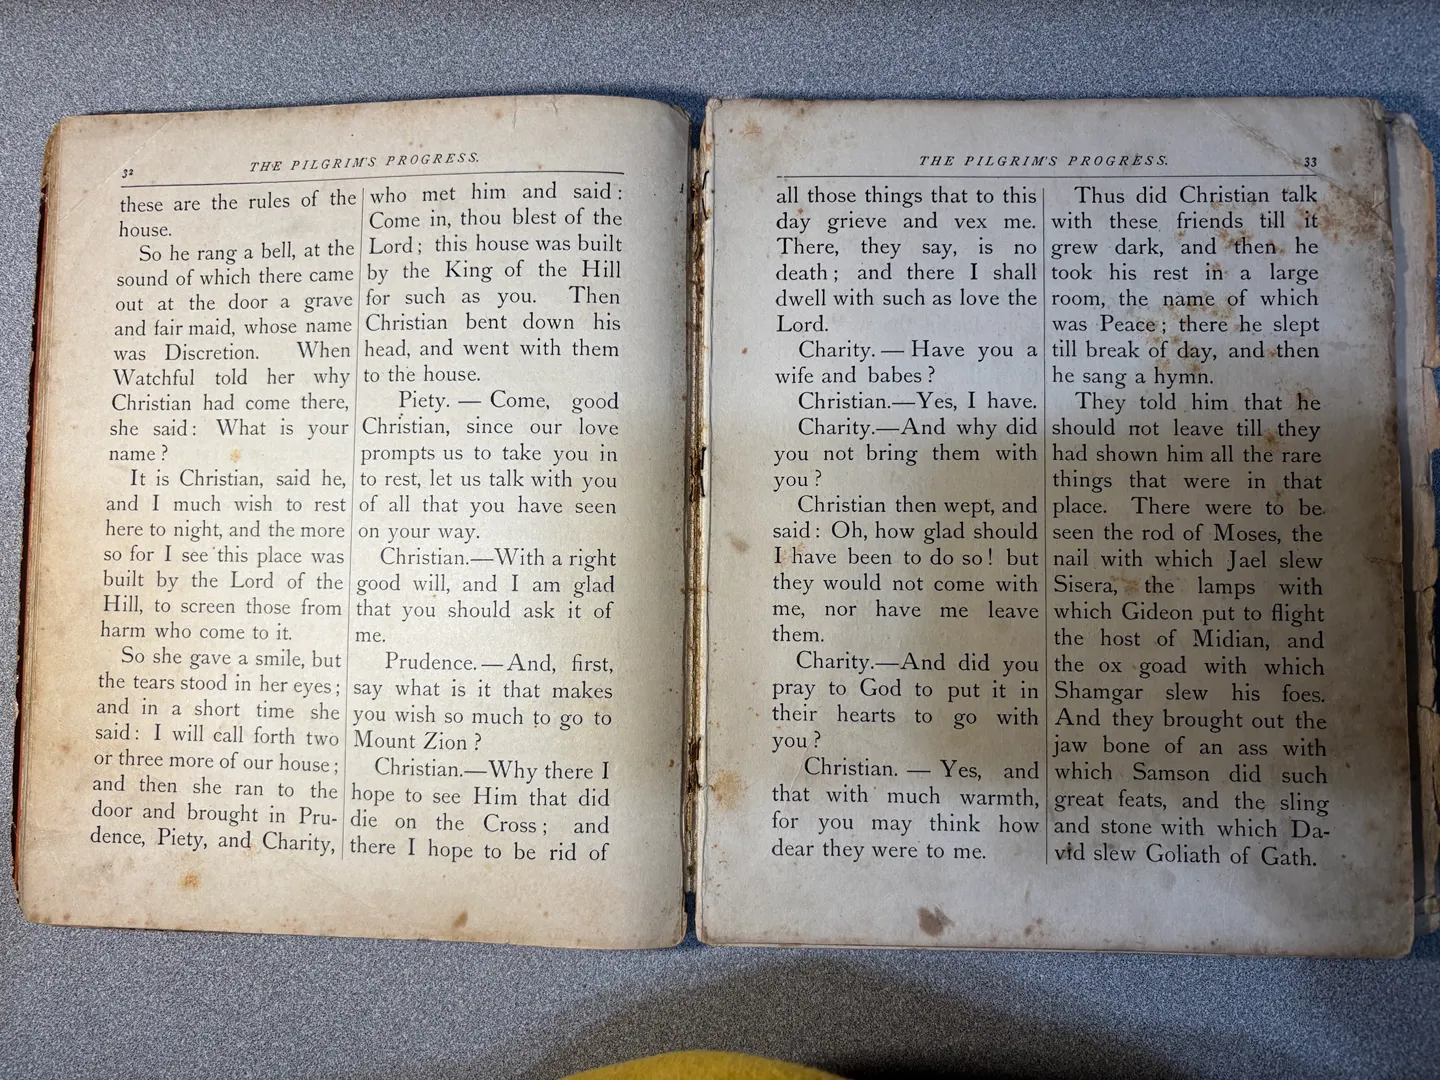 32
THE PILGRIM'S PROGRESS.
these are the rules of the
house.
So he rang a bell, at the
sound of which there came
out at the door a grave
and fair maid, whose name
was Discretion. When
Watchful told her why
Christian had come there,
she said: What is your
name?
It is Christian, said he,
and I much wish to rest
here to night, and the more
so for I see this place was
built by the Lord of the
Hill, to screen those from
harm who come to it.
So she gave a smile, but
the tears stood in her eyes;
and in a short time she
said: I will call forth two
or three more of our house;
and then she ran to the
door and brought in Pru-
dence, Piety, and Charity,
who met him and said:
Come in, thou blest of the
Lord; this house was built
by the King of the Hill
for such as you. Then
Christian bent down his
head, and went with them
to the house.
Piety. — Come, good
Christian, since our love
prompts us to take you in
to rest, let us talk with you
of all that you have seen
on your way.
Christian.—With a right
good will, and I am glad
that you should ask it of
me.
Prudence. — And, first,
say what is it that makes
you wish so much to go to
Mount Zion?
Christian.—Why there I
hope to see Him that did
die on the Cross; and
there I hope to be rid of
THE PILGRIM'S PROGRESS.
33
all those things that to this
day grieve and vex me.
There, they say, is no
death; and there I shall
dwell with such as love the
Lord.
Charity. — Have you a
wife and babes?
Christian.—Yes, I have.
Charity.—And why did
you not bring them with
you?
Christian then wept, and
said: Oh, how glad should
I have been to do so! but
they would not come with
me, nor have me leave
them.
Charity.—And did you
pray to God to put it in
their hearts to go with
you?
Christian. — Yes, and
that with much warmth,
for you may think how
dear they were to me.
Thus did Christian talk
with these friends till it
grew dark, and then he
took his rest in a large
room, the name of which
was Peace; there he slept
till break of day, and then
he sang a hymn.
They told him that he
should not leave till they
had shown him all the rare
things that were in that
place. There were to be
seen the rod of Moses, the
nail with which Jael slew
Sisera, the lamps with
which Gideon put to flight
the host of Midian, and
the ox goad with which
Shamgar slew his foes.
And they brought out the
jaw bone of an ass with
which Samson did such
great feats, and the sling
and stone with which Da-
vid slew Goliath of Gath.